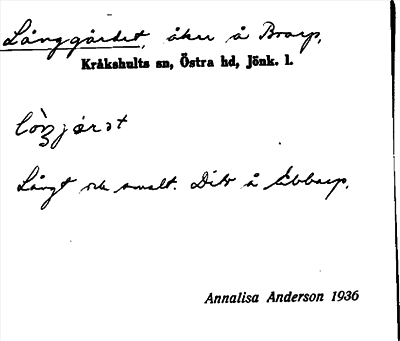 Långgärdet, åker å Broarp,
Kråkshults sn, Östra hd, Jönk. l.
Långt och smalt. Dito å Ebbarp.
Annalisa Anderson 1936